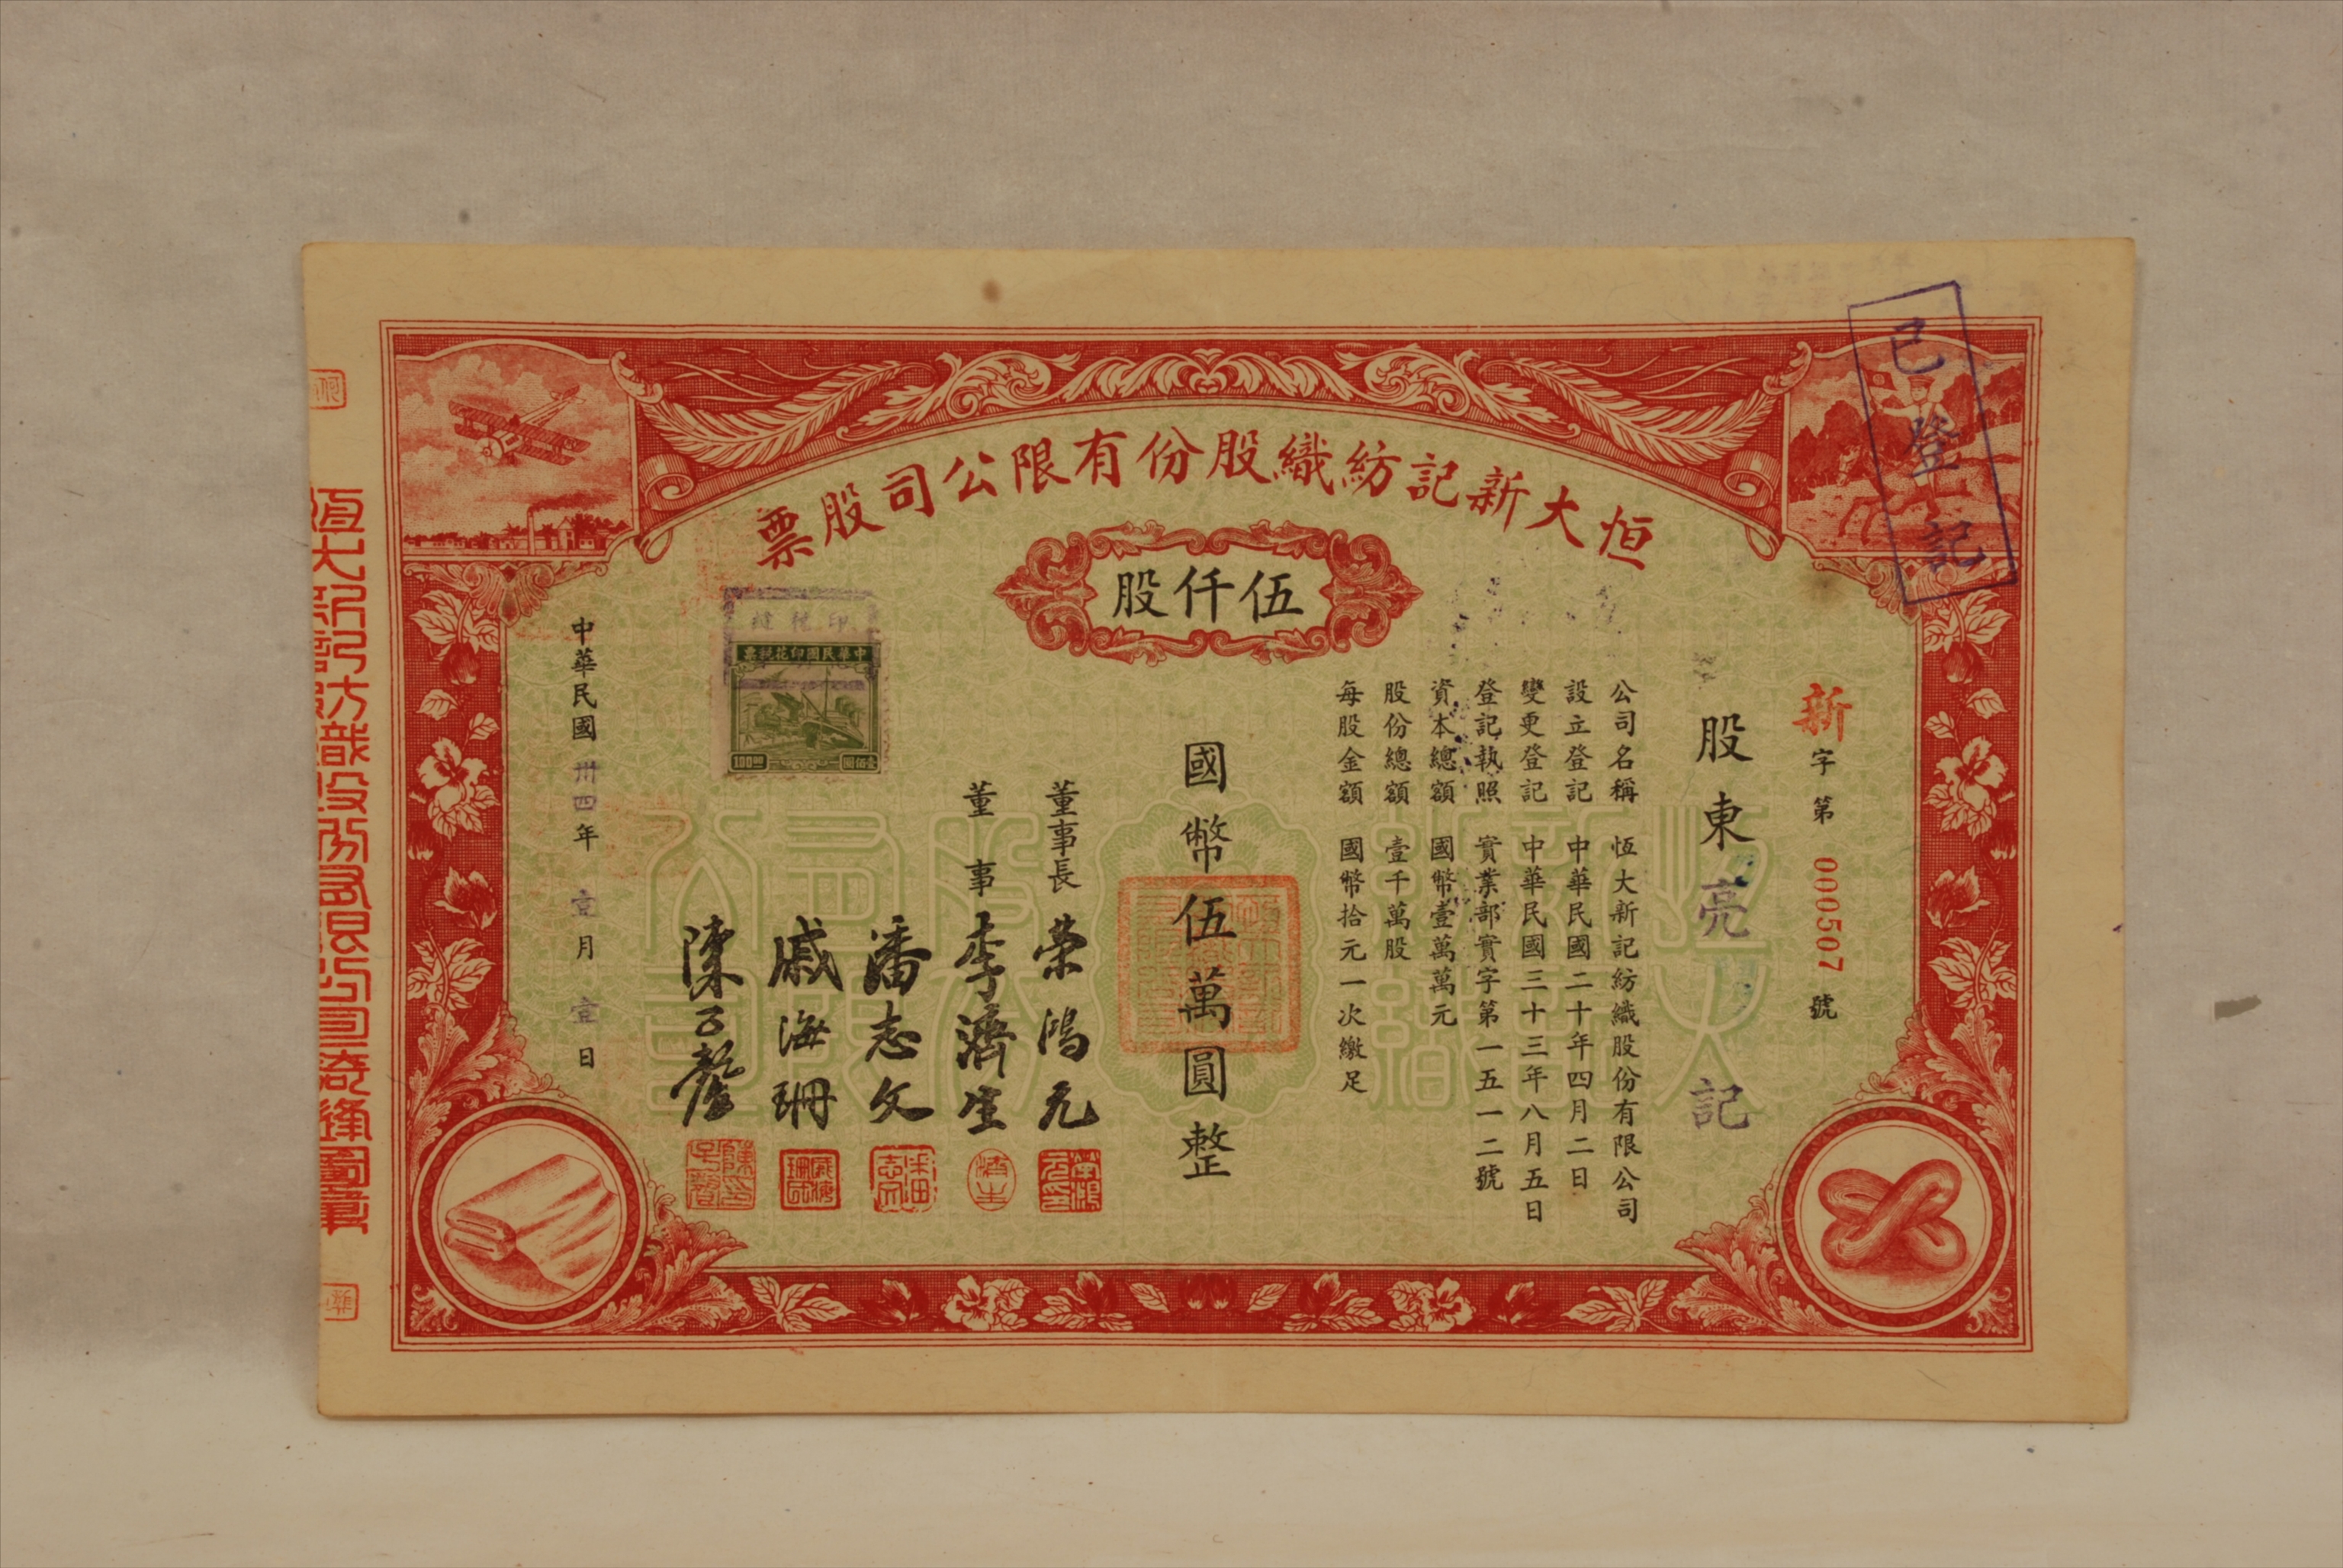 恒大新記紡織股份有限公司股票
伍仟股
已登記
新字第000507號
股東亮記
公司名稱 恆大新記紡織股份有限公司
設立登記 中華民國二十年四月二日
變更登記 中華民國三十三年八月五日
登記執照 實業部實字第一五一二號
資本總額 國幣壹萬萬元
股份總額 壹千萬股
每股金額 國幣拾元一次繳足
國幣伍萬圓整
董事長 榮鴻元
董事 李濟生
潘志文
戚海珊
陳子馨
印花稅票
中華民國印花稅票
100.00
壹佰圓
中華民國卅四年壹月壹日
恆大新記紡織股份有限公司騎縫圖章